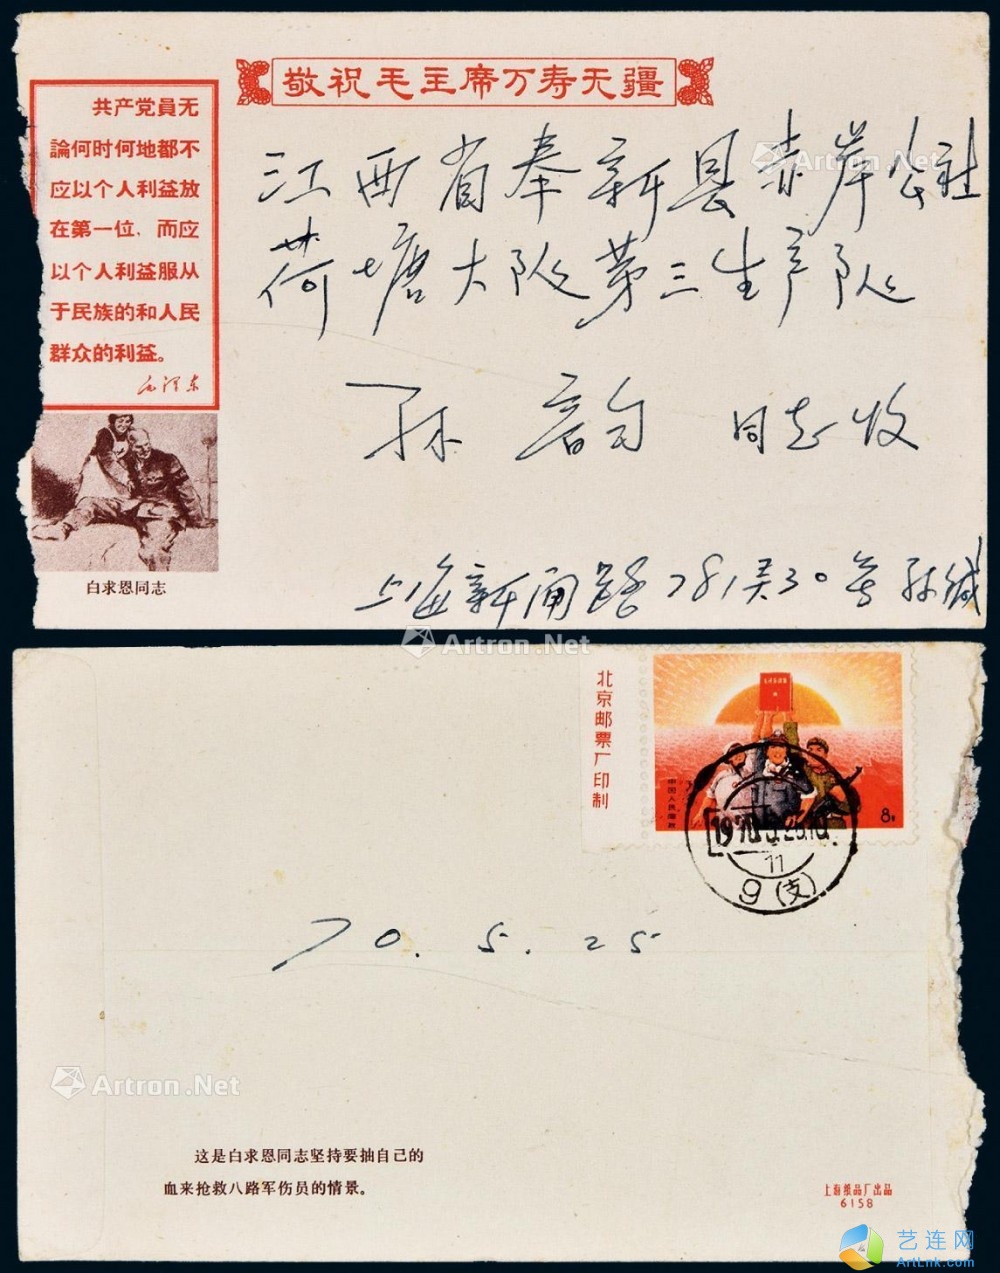 敬祝毛主席万寿无疆
共产党員无
論何时何地都不
应以个人利益放
在第一位，而应
以个人利益服从
于民族的和人民
群众的利益。
毛泽东
白求恩同志
江西省奉新县赤岸公社
荷塘大队第三生产队
孙韵同志收
上海新闸路781弄30号孙缄
Artron.Net
Artron.Net
北京邮票厂印制
中国人民邮政
8分
11
9(支)
70.5.25
Artron.Net
这是白求恩同志坚持要抽自己的
血来抢救八路军伤员的情景。
上海紙品厂出品
6158
艺连网
ArtLnk.com